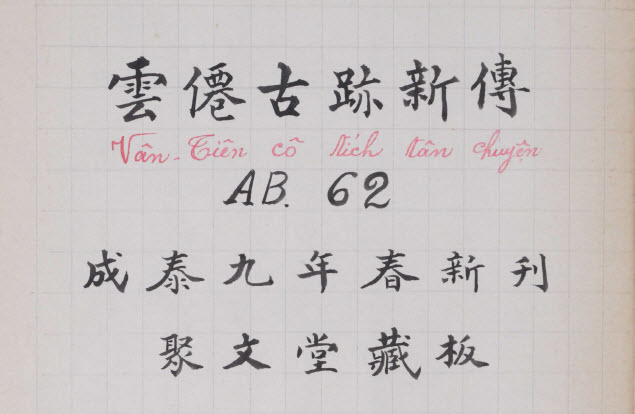 雲僊古跡新傳
Vân-Tiên cô tích tân chuyện
AB. 62
成泰九年春新刊
聚文堂藏板